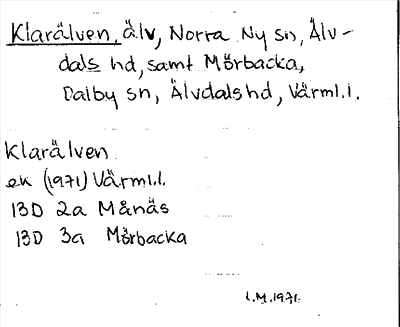 Klarälven, älv, Norra Ny sn, Älv-
dals hd, samt Mörbacka,
Dalby sn, Älvdals hd, Värml.l.
Klarälven
ek (1971) Värml.l.
13D 2a Månäs
13D 3a Mörbacka
L.M.1971.